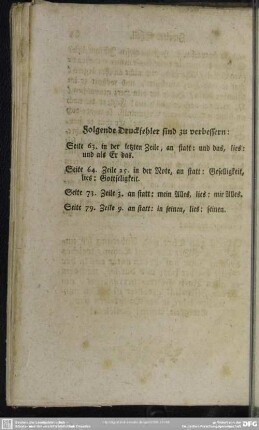 Folgende Druckfehler sind zu verbessern:
Seite 63. in der letzten Zeile, an statt: und das, lies:
und als Er das.
Seite 64. Zeile 25. in der Note, an statt: Geselligkeit,
lies: Gottseligkeit.
Seite 73. Zeile 3. an statt: mein Alles, lies: mir Alles.
Seite 79. Zeile 9. an statt: in seinen, lies: seinen.
DFG